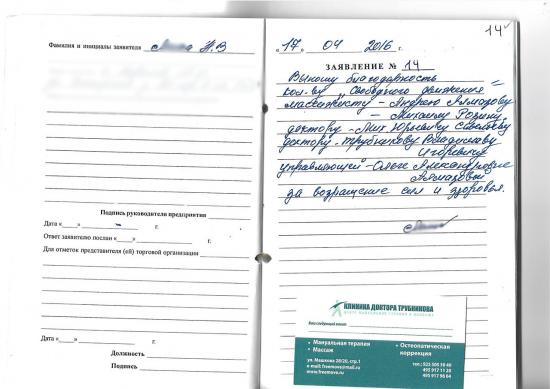 Фамилия и инициалы заявителя Н.В
Подпись руководителя предприятия
Дата «      »                г.
Ответ заявителю послан «      »                г.
Для отметок представителя (ей) торговой организации
Дата «      »                г.
Должность
Подпись
14
«17» 04 2016 г.
ЗАЯВЛЕНИЕ № 14
Выношу благодарность
кол-ву „Свободного движения“ –
массажисту – Андрею Алмазову
– Михаилу Родину
доктору – Мих Юрьевичу Савельеву
доктору – Трубникову Владиславу
Игоревичу
управляющей – Ольге Александровне
Алмазовой
за возращение сил и здоровья.
КЛИНИКА ДОКТОРА ТРУБНИКОВА
ЦЕНТР МАНУАЛЬНОЙ ТЕРАПИИ И МАССАЖА
Ваш следующий визит:
• Мануальная терапия
• Массаж
• Остеопатическая
коррекция
ул. Машкова 28/20, стр.1
e-mail: freemova@mail.ru
www.freemove.ru
495 917 11 20
495 917 98 04